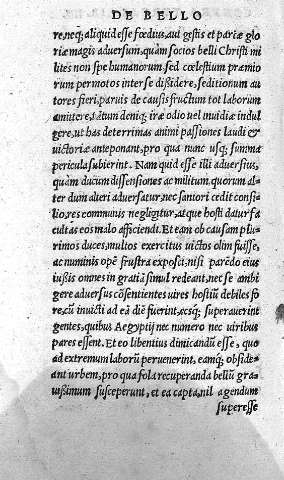 DE BELLO
re, neq; aliquid esse fœdius, aut gestis et pariæ glo
riæ magis aduersum, quàm socios belli Christi mi
lites non spe humanorum, sed cœlestium præmio
rum permotos inter se dißidere, seditionum au
tores fieri, paruis de causis fructum tot laborum
amittere, tātùm deniq; iræ odio uel inuidiæ indul
gere, ut has deterrimas animi paßiones laudi et
uictoriæ anteponant, pro qua nunc usq; summa
pericula subierint. Nam quid esse illi aduersius,
quàm ducum dissensiones ac militum, quorum al-
ter dum alteri aduersatur, nec saniori cedit consi-
lio, res communis negligitur, atque hosti datur fa
cultas eos malo afficiendi. Et eam ob causam plu-
rimos duces, multos exercitus uictos olim fuisse,
ac numinis opē frustra exposci, nisi paredo eius
iußis omnes in gratiā simul redeant, nec se ambi
gere aduersus cōsentientes uires hostiū debiles fo
re, cū inuicti ad eā diē fuerint, eosq; superauerint
gentes, quibus Aegyptij nec numero nec uiribus
pares essent. Et eo libentius dimicandū esse, quo
ad extremum laborū peruenerint, eamq; obside-
ant urbem, pro qua sola recuperanda bellū gra-
uißimum susceperunt, et ea capta, nil agendum
superesse